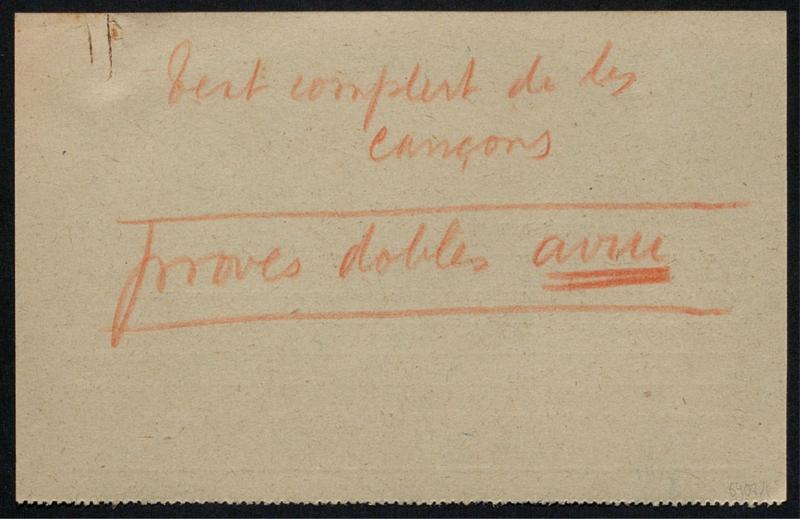 Text complert de les
cançons
proves dobles avui